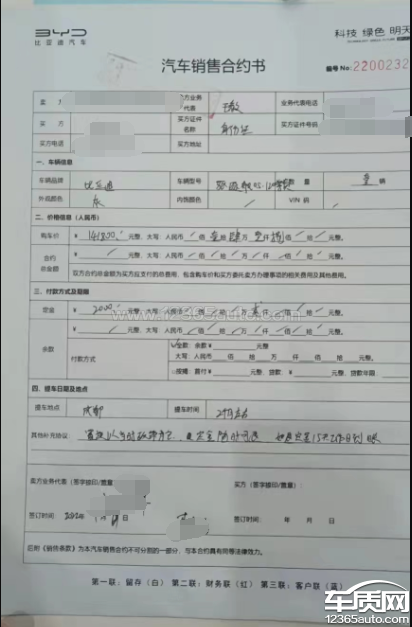 BYD
比亚迪汽车
科技 绿色 明天
汽车销售合约书
编号 No: 2200232
卖 方 买方业务代表 业务代表电话
买 方 买方证件名称 身份证 买方证件号码
买方电话 买方地址
一、车辆信息
车辆品牌 比亚迪 车辆型号 数 量 壹 辆
外观颜色 灰 内饰颜色 / VIN 码 /
二、价格信息（人民币）
购车价 ¥ 141800 元整，大写：人民币 / 佰 壹 拾 肆 万 壹 仟 捌 佰 / 拾 / 元整。
合约总金额 ¥ / 元整，大写：人民币 / 佰 / 拾 / 万 / 仟 / 佰 / 拾 / 元整。
双方合约非金额为买方应支付的总费用，包含购车价和买方委托卖方办理事项的相关费用及其他费用。
三、付款方式及期限
定金 ¥ 2000 元整，大写：人民币 佰 拾 万 仟 佰 拾 元整。
¥ / 元整，大写：人民币 / 佰 / 拾 / 万 / 仟 / 佰 / 拾 / 元整。
余款 付款方式
□全款 余款 ¥ 元整
大写：人民币 佰 拾 万 仟 佰 拾 元整。
□按揭 首付 ¥ 元整，贷款：¥ 元整，贷款年限
四、提车日期及地点
提车地点 成都 提车时间 2月左右
其他补充协议
卖方业务代表（签字按印/盖章） 买方：（签字按印/盖章）
签订时间 2022年 月 日 签订时间： 年 月 日
后附《销售条款》为本汽车销售合约不可分割的一部分，与本合约具有同等法律效力。
第一联：留存（白） 第二联：财务联（红） 第三联：客户联（蓝）
www.12365auto.com
车质网
12365auto.com